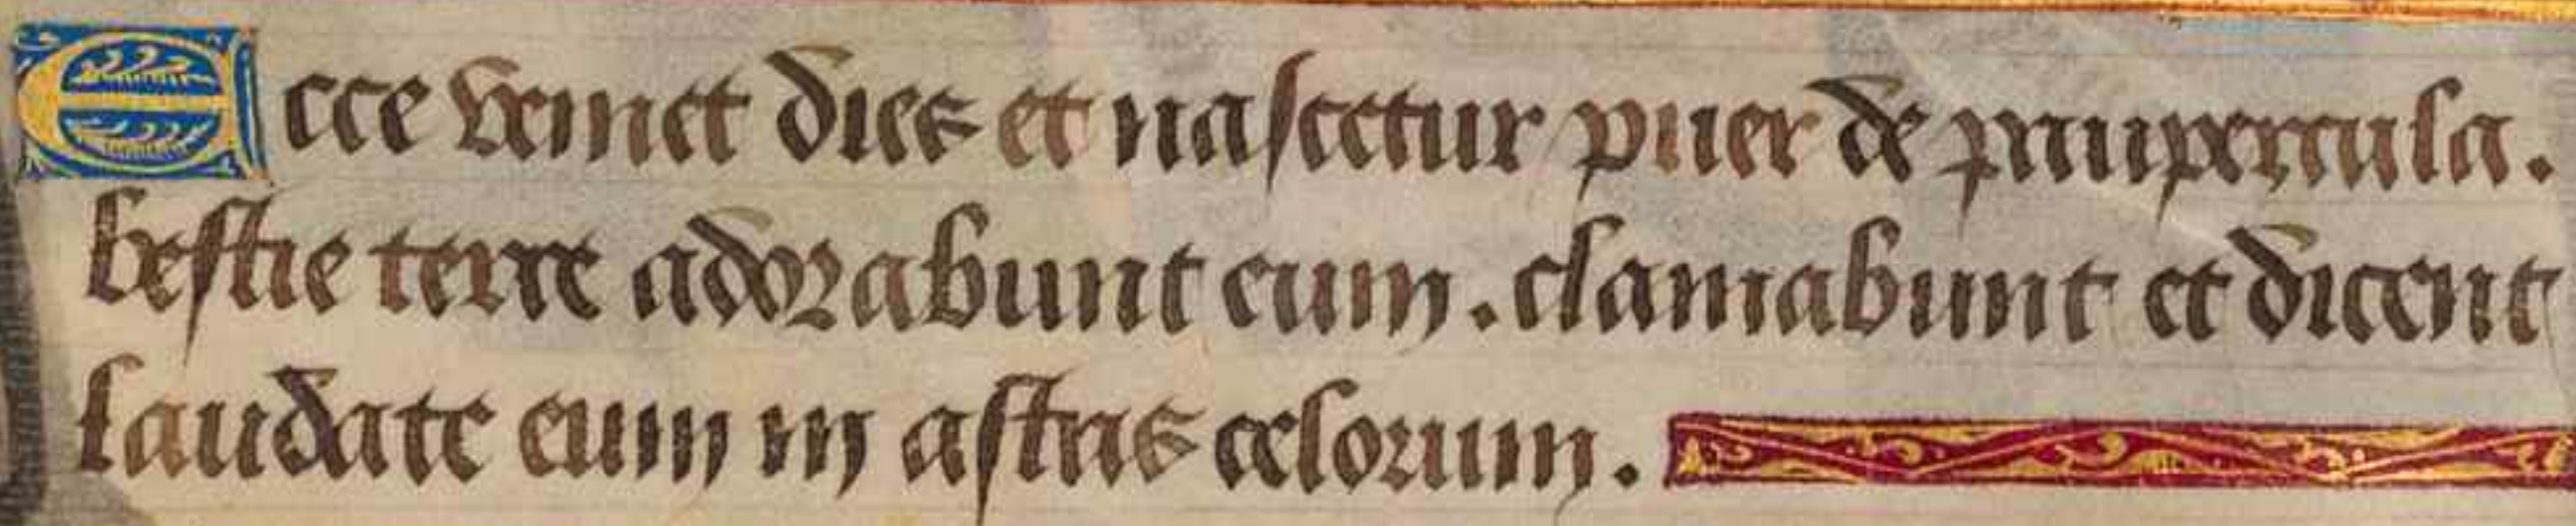 Ecce veniet dies et nascetur puer de paupercula.
bestie terre adorabunt eum. clamabunt et dicent
laudate eum in astris celorum.